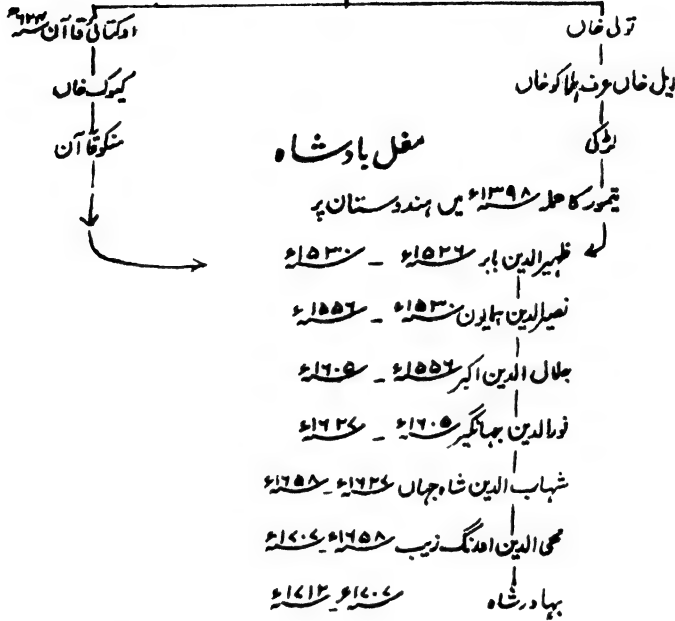 تولی خاں
اوکتائی قاآن ۶۲۴ھ
ایل خاں عرف ہلاکو خاں
کیوک خاں
لڑکی
منکو قاآن
مغل بادشاہ
تیمور کا حملہ ۱۳۹۸ء میں ہندوستان پر
ظہیرالدین بابر ۱۵۲۶ء - ۱۵۳۰ء
نصیرالدین ہمایون ۱۵۳۰ء - ۱۵۵۶ء
جلال الدین اکبر ۱۵۵۶ء - ۱۶۰۵ء
نورالدین جہانگیر ۱۶۰۵ء - ۱۶۲۷ء
شہاب الدین شاہ جہاں ۱۶۲۷ء - ۱۶۵۸ء
محی الدین اورنگ زیب ۱۶۵۸ء - ۱۷۰۷ء
بہادر شاہ ۱۷۰۷ء - ۱۷۱۲ء